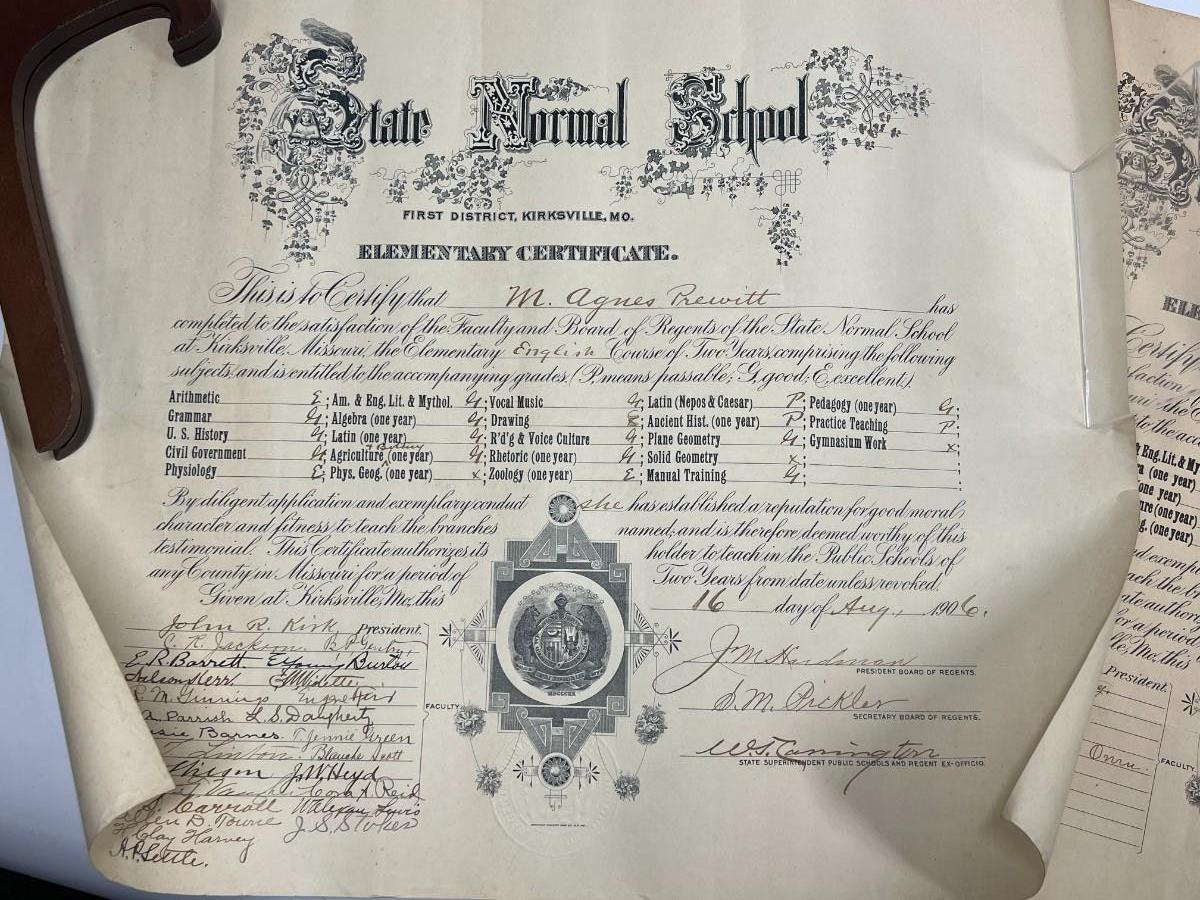 State Normal School
FIRST DISTRICT, KIRKSVILLE, MO.
ELEMENTARY CERTIFICATE.
This is to Certify that M. Agnes Prewitt has
completed to the satisfaction of the Faculty and Board of Regents of the State Normal School
at Kirksville, Missouri, the Elementary English Course of Two Years, comprising the following
subjects, and is entitled to the accompanying grades. (P, means passable; G, good; E, excellent.)
Arithmetic E; Am. & Eng. Lit. & Mythol. G; Vocal Music G; Latin (Nepos & Caesar) P; Pedagogy (one year) G;
Grammar G; Algebra (one year) G; Drawing E; Ancient Hist. (one year) P; Practice Teaching P;
U. S. History G; Latin (one year) G; R'd'g & Voice Culture G; Plane Geometry G; Gymnasium Work x;
Civil Government G; Agriculture Botany (one year) G; Rhetoric (one year) G; Solid Geometry x;
Physiology E; Phys. Geog. (one year) x; Zoology (one year) E; Manual Training G;
By diligent application and exemplary conduct she has established a reputation for good moral
character and fitness to teach the branches named, and is therefore, deemed worthy of this
testimonial. This Certificate authorizes its holder to teach in the Public Schools of
any County in Missouri for a period of Two Years from date unless revoked.
Given at Kirksville, Mo., this 16 day of Aug., 1906.
John R. Kirk, President.
C. R. Jackson. B. P. Gentry,
E. R. Barrett E Young Burton
R. M. Ginnings Eugene Fair
Parrish L. S. Daugherty
Barnes. T. Jennie Green
Linton Blanche Scott
J. W. Heyd
Cora A. Reid
Carroll Lewis
B. Towne J. S. Stokes
Clay Harvey
A. P. Settle.
FACULTY
J M Hardman
PRESIDENT BOARD OF REGENTS.
S. M. Pickler
SECRETARY BOARD OF REGENTS.
W. T. Carrington
STATE SUPERINTENDENT PUBLIC SCHOOLS AND REGENT EX-OFFICIO.
MDCCCXX
ELE
Certify
faction
& Eng. Lit. & My
(one year)
one year)
ure (one year)
g. (one year)
President.
FACULTY